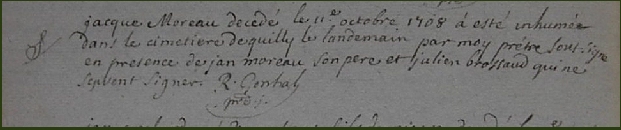 S
jacque Moreau decedé le 11e octobre 1708 á esté inhumée
dans le cimetiere de quilly le landemain par moy prétre sous signe
en presence de jan moreau son pere et julien brossaud qui ne
scavent signer. R. Gonhal